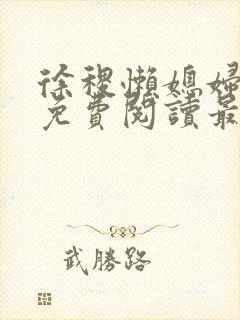 徐稷懶媳婦
免費閱讀最
武勝路